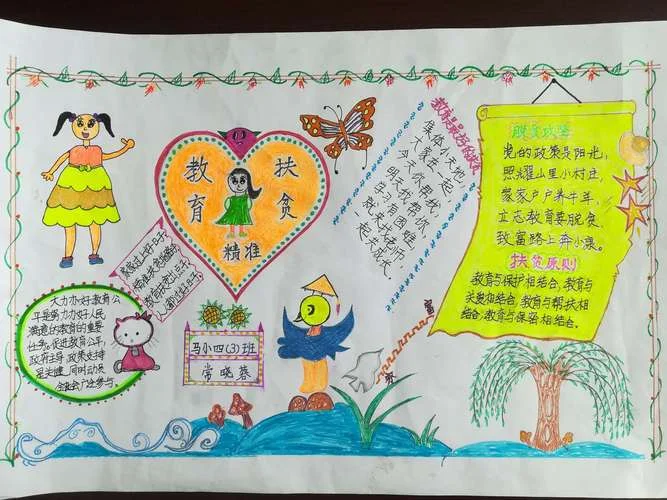 教育
扶贫
精准
大力办好教育公
平是努力办好人民
满意的教育的重要
任务。促进教育公平,
政府主导 政策支持
是关键,同时动员
全社会广泛参与。
马小四(3)班
常晓蓉
集体小天地,
大家在一起,
今天你帮我,
明天我帮你,
学习有困难,
就来找老师,
一起来成长。
脱贫攻坚
党的政策是阳光,
照耀山里小村庄,
家家户户养牛羊,
立志教育要脱贫,
致富路上奔小康。
扶贫原则
教育与保护相结合,教育与
关爱相结合,教育与帮扶相
结合,教育与保密相结合。